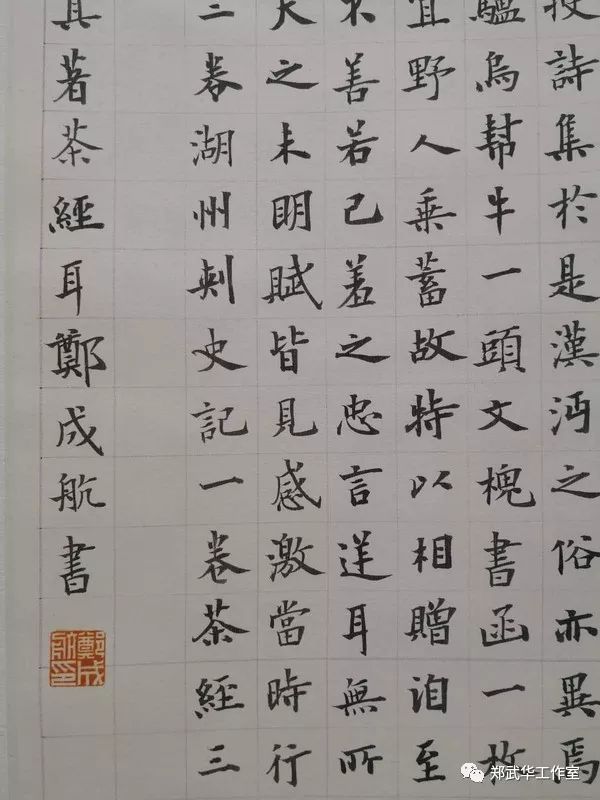 授詩集於是漢沔之俗亦異焉
驢烏幫牛一頭文槐書函一枚
宜野人乘蓄故特以相贈洎至
不善若己羞之忠言逆耳無所
天之未明賦皆見感激當時行
二卷湖州刺史記一卷茶經三
其著茶經耳鄭成航書
鄭成航印
郑武华工作室